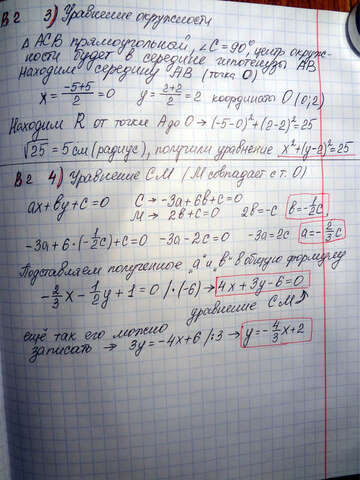 В2 3) Уравнение окружности
Δ АСВ прямоугольной, ∠C = 90°, центр окруж-
ности будет в середине гипотенузы АВ
Находим середину АВ (точка О)
x = (-5+5)/2 = 0 y = (2+2)/2 = 2 координаты O(0;2)
Находим R от точки А до О → (-5-0)²+(2-2)²=25
√25 = 5см (радиус), получили уравнение x²+(y-2)²=25
В2 4) Уравнение СМ (М совпадает с т. О)
ax+by+c=0 C → -3a+6b+c=0
M → 2b+c=0 2b=-c b=-1/2c
-3a+6·(-1/2c)+c=0 -3a-2c=0 -3a=2c a=-2/3c
Подставляем полученное "a" и "b" в общую формулу
-2/3x-1/2y+1=0 /·(-6) → 4x+3y-6=0
уравнение СМ
ещё так его можно
записать → 3y=-4x+6 /:3 → y=-4/3x+2